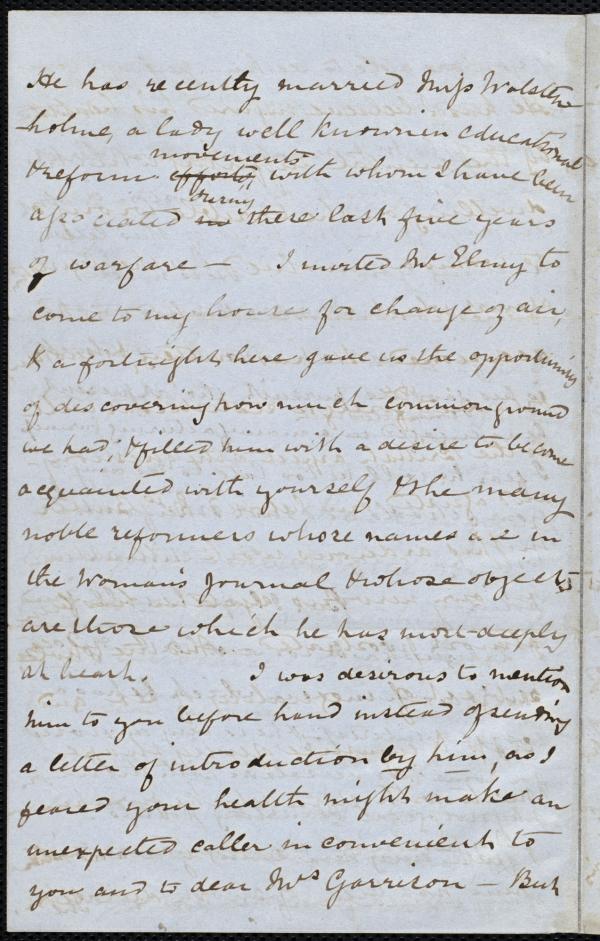 He has recently married Miss Wolsten-
holme, a lady well known in educational
& reform ~~efforts,~~ movements with whom I have been
associated ~~in~~ during these last five years
of warfare — I invited Mr Elmy to
come to my house for change of air,
& a fortnight here gave us the opportunity
of discovering how much common ground
we had; & filled him with a desire to become
acquainted with yourself & the many
noble reformers whose names are in
the Woman's Journal & whose objects
are those which he has most deeply
at heart. I was desirous to mention
him to you before hand instead of sending
a letter of introduction by him, as I
feared your health might make an
unexpected caller inconvenient to
you and to dear Mrs Garrison — But